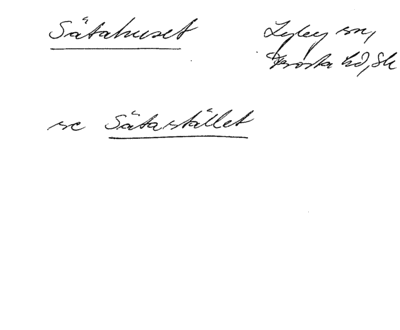 Sätahuset
Lyby sn,
Frosta hd, Sk
se Sätastället